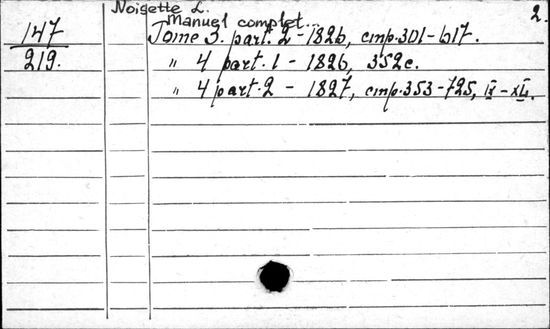 Noisette L. 2.
Manuel complet...
147 Tome 3. part. 2 - 1826, стр. 301-617.
219. " 4 part. 1 - 1826, 352 с.
" 4 part. 2 - 1827, стр. 353-725,